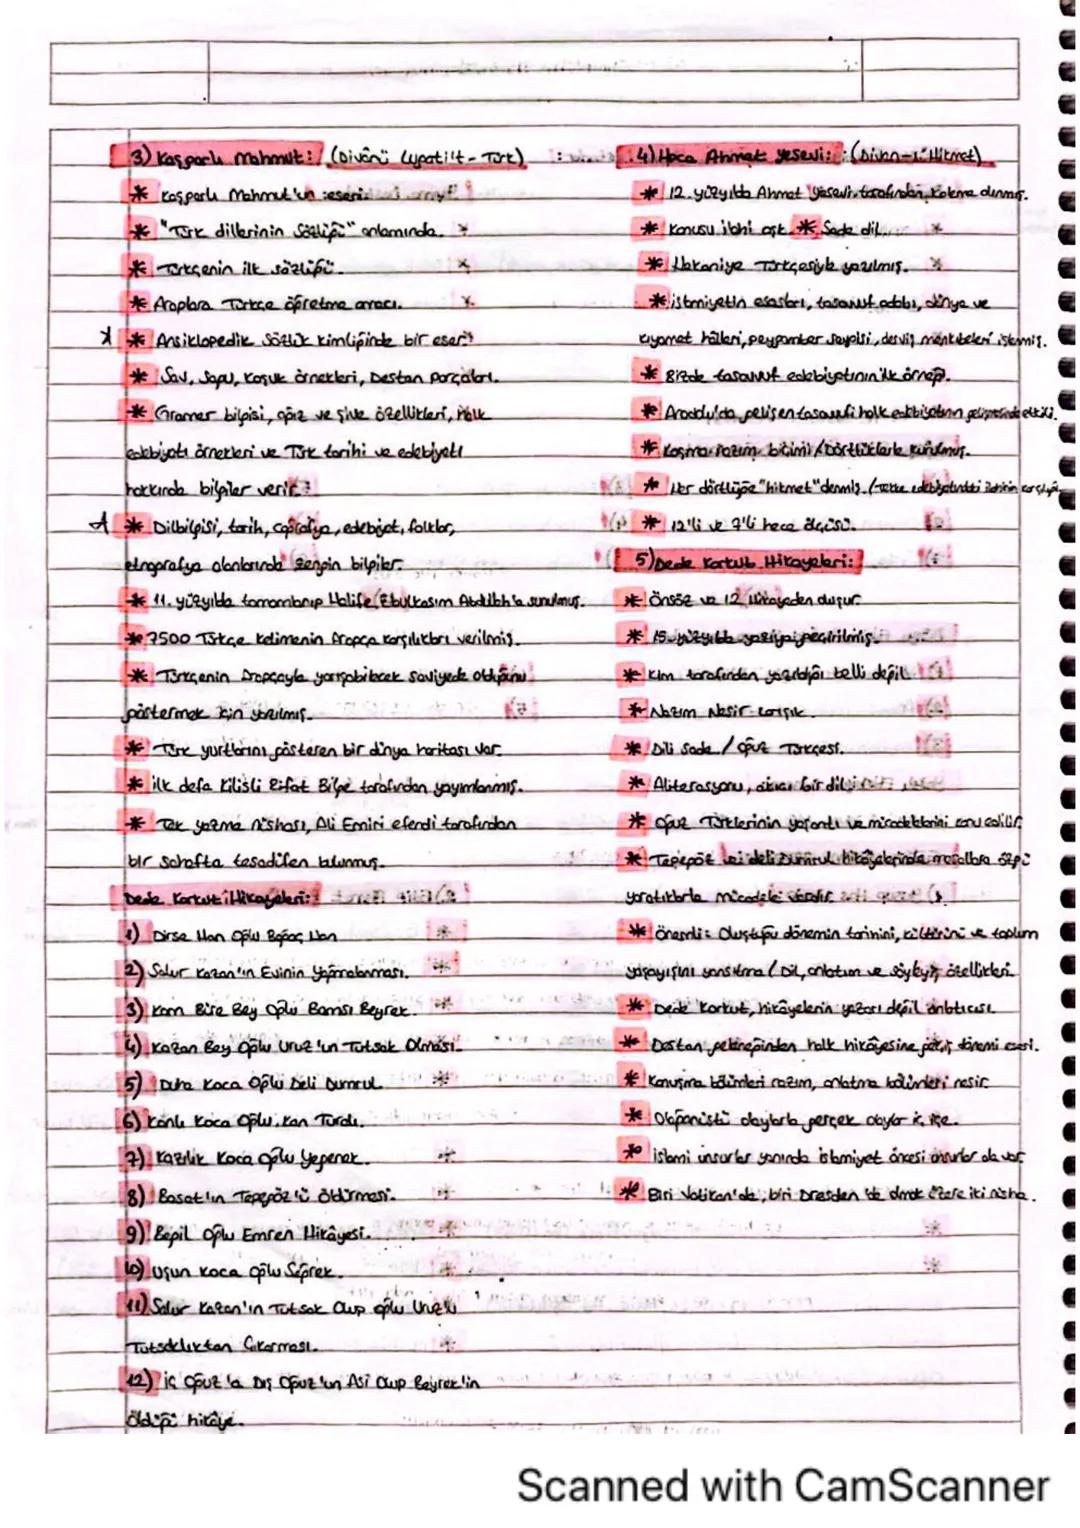 3) Kaşgarlı Mahmut: (Divânü Lugati't-Türk)
* Kaşgarlı Mahmut'un eseri.
* "Türk dillerinin sözlüğü" anlamında.
* Türkçenin ilk sözlüğü.
* Araplara Türkçe öğretme amacı.
* Ansiklopedik sözlük kimliğinde bir eser.
* Sav, Sagu, Koşuk örnekleri, Destan parçaları.
* Gramer bilgisi, ağız ve şive özellikleri, Halk
edebiyatı örnekleri ve Türk tarihi ve edebiyatı
hakkında bilgiler verir.
* Dilbilgisi, tarih, coğrafya, edebiyat, folklor,
etnografya alanlarında zengin bilgiler.
* 11. yüzyılda tamamlanıp Halife Ebulkasım Abdullah'a sunulmuş.
* 7500 Türkçe kelimenin Arapça karşılıkları verilmiş.
* Türkçenin Arapçayla yarışabilecek saviyede olduğunu
göstermek için yazılmış.
* Türk yurtlarını gösteren bir dünya haritası var.
* ilk defa Kilisli Rifat Bilge tarafından yayımlanmış.
* Tek yazma nüshası, Ali Emiri efendi tarafından
bir sahafta tesadüfen bulunmuş.
Dede Korkut Hikayeleri:
1) Dirse Han Oğlu Boğaç Han
2) Salur Kazan'ın Evinin Yağmalanması.
3) Kam Büre Bey Oğlu Bamsı Beyrek.
4) Kazan Bey Oğlu Uruz'un Tutsak Olması.
5) Duha Koca Oğlu Deli Dumrul.
6) Kanlı Koca Oğlu Kan Turalı.
7) Kazılık Koca Oğlu Yegenek.
8) Basat'ın Tepegöz'ü Öldürmesi.
9) Begil Oğlu Emren Hikâyesi.
10) Uşun Koca Oğlu Seğrek.
11) Salur Kazan'ın Tutsak Olup oğlu Uruz'u
Tutsaklıktan Çıkarması.
12) İç Oğuz'a Dış Oğuz'un Asi Olup Beyrek'in
Öldüğü hikâye.
4) Hoca Ahmet Yesevi: (Divan-ı Hikmet)
* 12. yüzyılda Ahmet Yesevi tarafından kaleme alınmış.
* Konusu ilahi aşk. * Sade dil.
* Hakaniye Türkçesiyle yazılmış.
* islamiyetin esasları, tasavvuf adabı, dünya ve
kıyamet hâlleri, peygamber sevgisi, derviş menkıbeleri işlenmiş.
* Bizde tasavvuf edebiyatının ilk örneği.
* Anadolu'da gelişen tasavvufi halk edebiyatının gelişmesinde etkili.
* Koşma nazım biçimi / Dörtlüklerle kurulmuş.
* Her dörtlüğe "hikmet" denmiş. (Tekke edebiyatındaki ilahinin karşılığı
* 12'li ve 7'li hece ölçüsü.
5) Dede Korkut Hikayeleri:
* Önsöz ve 12 Hikayeden oluşur.
* 15. yüzyılda yazıya geçirilmiş.
* Kim tarafından yazıldığı belli değil.
* Nazım Nesir karışık.
* Dili Sade / Oğuz Türkçesi.
* Aliterasyonu, akıcı bir dil
* Oğuz Türklerinin yaşantı ve mücadelelerini konu edilir.
* Tepegöz ve deli Dumrul hikâyelerinde masallara özgü
yaratıklarla mücadele vardır.
* Önemli: Oluştuğu dönemin tarihini, kültürünü ve toplum
yaşayışını yansıtma / Dil, anlatım ve söyleyiş özellikleri.
* Dede Korkut, hikâyelerin yazarı değil anlatıcısı.
* Destan geleneğinden halk hikâyesine geçiş dönemi eseri.
* Konuşma bölümleri nazım, anlatma bölümleri nesir.
* Olağanüstü olaylarla gerçek olaylar iç içe.
* islami unsurlar yanında islamiyet öncesi unsurlar da var.
* Biri Vatikan'da, biri Dresden'de olmak üzere iki nüsha.
Scanned with CamScanner